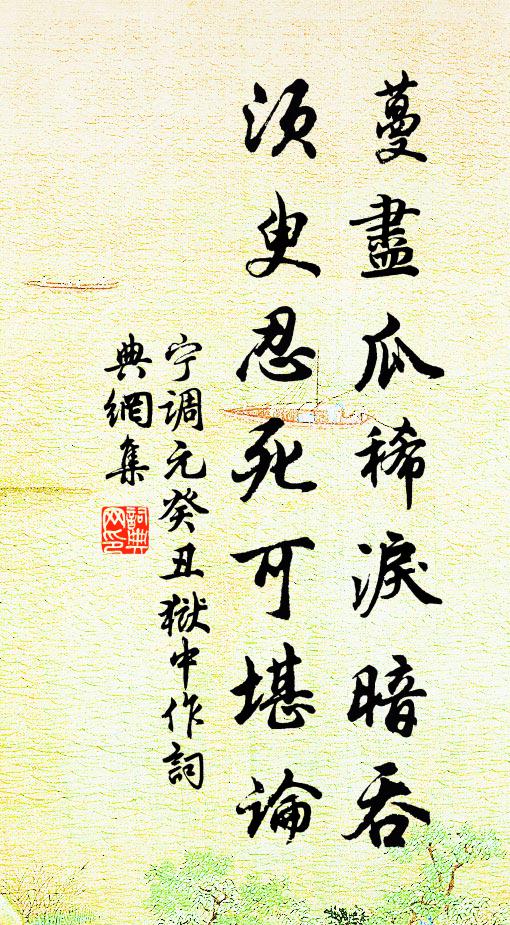 蔓盡瓜稀淚暗吞
須臾忍死可堪論
宁調元癸丑獄中作詞
典網集
詞典网印